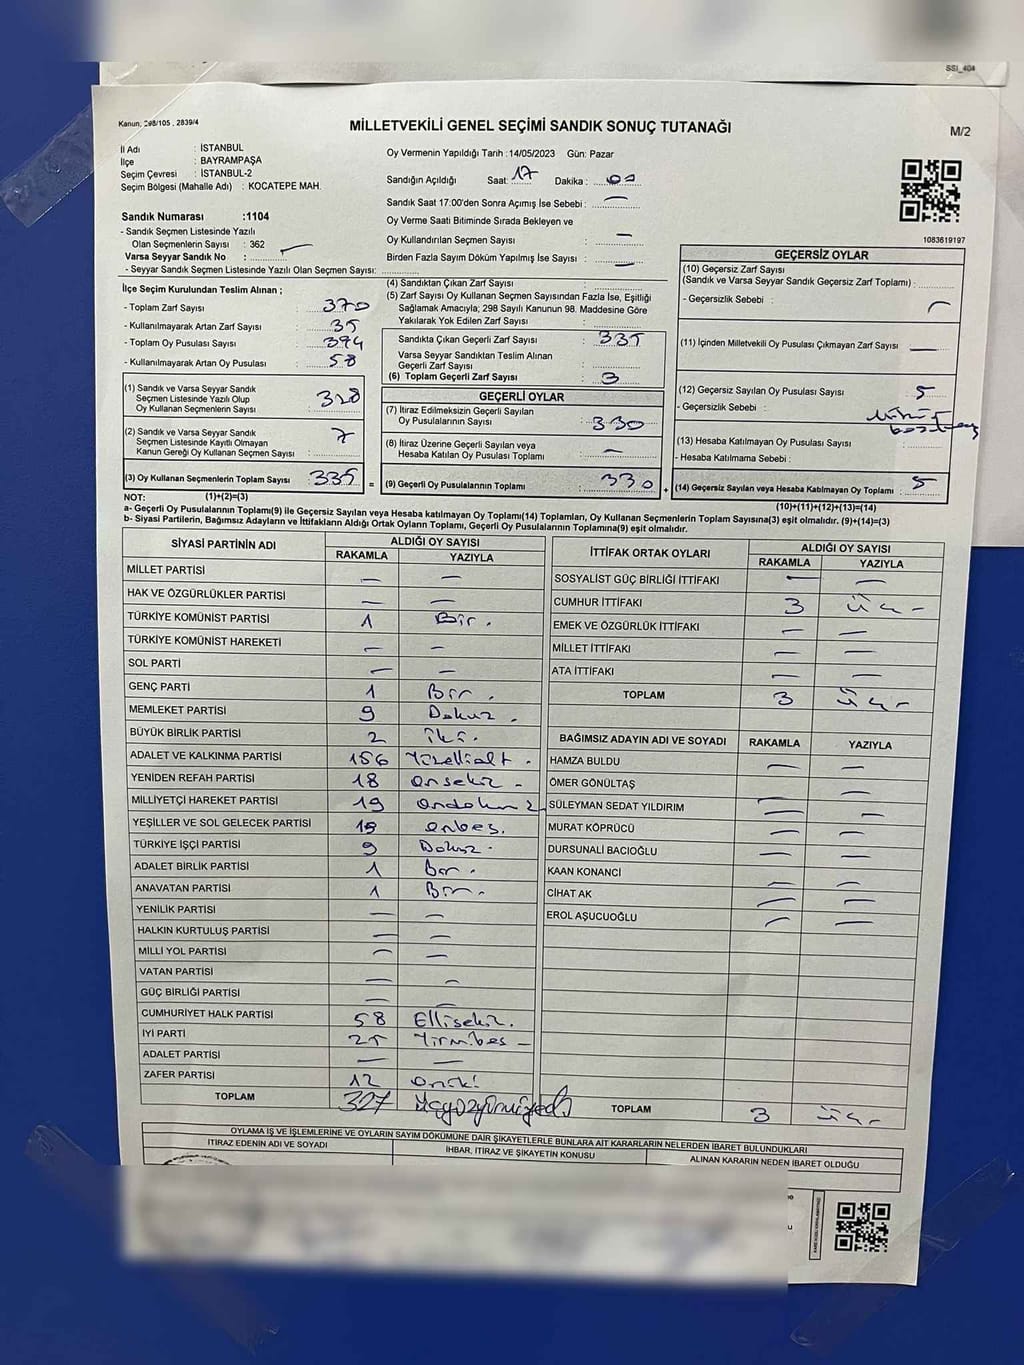 SSİ_404
Kanun, 298/105 , 2839/4
MİLLETVEKİLİ GENEL SEÇİMİ SANDIK SONUÇ TUTANAĞI
M/2
İl Adı : İSTANBUL
İlçe : BAYRAMPAŞA
Seçim Çevresi : İSTANBUL-2
Seçim Bölgesi (Mahalle Adı) : KOCATEPE MAH.
Sandık Numarası :1104
- Sandık Seçmen Listesinde Yazılı
Olan Seçmenlerin Sayısı : 362
Varsa Seyyar Sandık No :
- Seyyar Sandık Seçmen Listesinde Yazılı Olan Seçmen Sayısı:
Oy Vermenin Yapıldığı Tarih :14/05/2023 Gün: Pazar
Sandığın Açıldığı Saat: 17 Dakika : 00
Sandık Saat 17:00'den Sonra Açımış İse Sebebi : —
Oy Verme Saati Bitiminde Sırada Bekleyen ve
Oy Kullandırılan Seçmen Sayısı : —
Birden Fazla Sayım Döküm Yapılmış İse Sayısı : —
1083619197
İlçe Seçim Kurulundan Teslim Alınan ;
- Toplam Zarf Sayısı : 370
- Kullanılmayarak Artan Zarf Sayısı : 35
- Toplam Oy Pusulası Sayısı : 394
- Kullanılmayarak Artan Oy Pusulası : 58
(1) Sandık ve Varsa Seyyar Sandık
Seçmen Listesinde Yazılı Olup
Oy Kullanan Seçmenlerin Sayısı : 328
(2) Sandık ve Varsa Seyyar Sandık
Seçmen Listesinde Kayıtlı Olmayan
Kanun Gereği Oy Kullanan Seçmen Sayısı : 7
(3) Oy Kullanan Seçmenlerin Toplam Sayısı : 335 =
(1)+(2)=(3)
(4) Sandıktan Çıkan Zarf Sayısı :
(5) Zarf Sayısı Oy Kullanan Seçmen Sayısından Fazla İse, Eşitliği
Sağlamak Amacıyla; 298 Sayılı Kanunun 98. Maddesine Göre
Yakılarak Yok Edilen Zarf Sayısı :
Sandıkta Çıkan Geçerli Zarf Sayısı : 335
Varsa Seyyar Sandıktan Teslim Alınan
Geçerli Zarf Sayısı :
(6) Toplam Geçerli Zarf Sayısı : 3
GEÇERLİ OYLAR
(7) İtiraz Edilmeksizin Geçerli Sayılan
Oy Pusulalarının Sayısı : 330
(8) İtiraz Üzerine Geçerli Sayılan veya
Hesaba Katılan Oy Pusulası Toplamı : —
(9) Geçerli Oy Pusulalarının Toplamı : 330 +
GEÇERSİZ OYLAR
(10) Geçersiz Zarf Sayısı
(Sandık ve Varsa Seyyar Sandık Geçersiz Zarf Toplamı) :
- Geçersizlik Sebebi : —
(11) İçinden Milletvekili Oy Pusulası Çıkmayan Zarf Sayısı —
(12) Geçersiz Sayılan Oy Pusulası Sayısı : 5
- Geçersizlik Sebebi :
(13) Hesaba Katılmayan Oy Pusulası Sayısı :
- Hesaba Katılmama Sebebi :
(14) Geçersiz Sayılan veya Hesaba Katılmayan Oy Toplamı : 5
(10)+(11)+(12)+(13)=(14)
NOT:
a- Geçerli Oy Pusulalarının Toplamı(9) ile Geçersiz Sayılan veya Hesaba katılmayan Oy Toplamı(14) Toplamları, Oy Kullanan Seçmenlerin Toplam Sayısına(3) eşit olmalıdır. (9)+(14)=(3)
b- Siyasi Partilerin, Bağımsız Adayların ve İttifakların Aldığı Ortak Oyların Toplamı, Geçerli Oy Pusulalarının Toplamına(9) eşit olmalıdır.
SİYASİ PARTİNİN ADI ALDIĞI OY SAYISI
RAKAMLA YAZIYLA
MİLLET PARTİSİ — —
HAK VE ÖZGÜRLÜKLER PARTİSİ — —
TÜRKİYE KOMÜNİST PARTİSİ 1 Bir.
TÜRKİYE KOMÜNİST HAREKETİ — —
SOL PARTİ — —
GENÇ PARTİ 1 Bir.
MEMLEKET PARTİSİ 9 Dokuz.
BÜYÜK BİRLİK PARTİSİ 2 iki.
ADALET VE KALKINMA PARTİSİ 156 Yüzellialt.
YENİDEN REFAH PARTİSİ 18 onsekiz -
MİLLİYETÇİ HAREKET PARTİSİ 19 ondokuz
YEŞİLLER VE SOL GELECEK PARTİSİ 15 onbeş.
TÜRKİYE İŞÇİ PARTİSİ 9 Dokuz.
ADALET BİRLİK PARTİSİ 1 Bir.
ANAVATAN PARTİSİ 1 Bir.
YENİLİK PARTİSİ — —
HALKIN KURTULUŞ PARTİSİ — —
MİLLİ YOL PARTİSİ — —
VATAN PARTİSİ — —
GÜÇ BİRLİĞİ PARTİSİ — —
CUMHURİYET HALK PARTİSİ 58 Ellisekiz.
İYİ PARTİ 25 Yirmibeş -
ADALET PARTİSİ — —
ZAFER PARTİSİ 12 oniki
TOPLAM 327 üçyüzyirmiyedi
İTTİFAK ORTAK OYLARI ALDIĞI OY SAYISI
RAKAMLA YAZIYLA
SOSYALİST GÜÇ BİRLİĞİ İTTİFAKI — —
CUMHUR İTTİFAKI 3 Üç -
EMEK VE ÖZGÜRLÜK İTTİFAKI — —
MİLLET İTTİFAKI — —
ATA İTTİFAKI — —
TOPLAM 3 Üç -
BAĞIMSIZ ADAYIN ADI VE SOYADI RAKAMLA YAZIYLA
HAMZA BULDU — —
ÖMER GÖNÜLTAŞ — —
SÜLEYMAN SEDAT YILDIRIM — —
MURAT KÖPRÜCÜ — —
DURSUNALİ BACIOĞLU — —
KAAN KONANCİ — —
CİHAT AK — —
EROL AŞUCUOĞLU — —
TOPLAM 3 üç -
OYLAMA İŞ VE İŞLEMLERİNE VE OYLARIN SAYIM DÖKÜMÜNE DAİR ŞİKAYETLERLE BUNLARA AİT KARARLARIN NELERDEN İBARET BULUNDUKLARI
İTİRAZ EDENİN ADI VE SOYADI İHBAR, İTİRAZ VE ŞİKAYETİN KONUSU ALINAN KARARIN NEDEN İBARET OLDUĞU